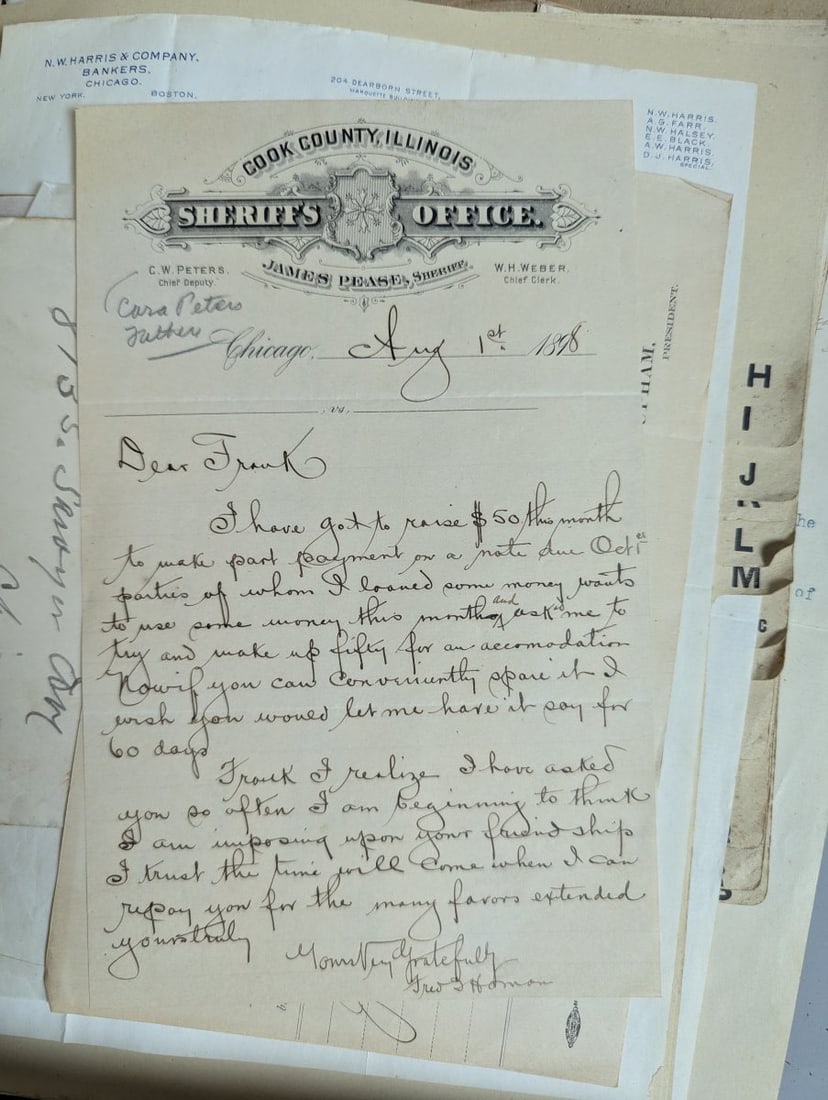 N.W. HARRIS & COMPANY,
BANKERS,
CHICAGO.
NEW YORK. BOSTON.
204 DEARBORN STREET,
MARQUETTE BUILDING
N.W. HARRIS.
A.G. FARR.
N.W. HALSEY.
E.E. BLACK.
A.W. HARRIS.
D.J. HARRIS.
SPECIAL.
COOK COUNTY, ILLINOIS
SHERIFF'S OFFICE.
JAMES PEASE, SHERIFF.
C.W. PETERS.
Chief Deputy.
W.H. WEBER.
Chief Clerk.
Cara Peters
Father
Chicago, Aug 1st. 1898
vs.
Dear Frank
I have got to raise $50 this month
to make part payment on a note due Oct 1st
parties of whom I loaned some money wants
to use some money this month and asked me to
try and make up fifty for an accomodation
Now if you can conveniently spare it I
wish you would let me have it say for
60 days
Frank I realize I have asked
you so often I am beginning to think
I am imposing upon your friend ship
I trust the time will come when I can
repay you for the many favors extended
yours truly
Yours Very Gratefully
Fred Homan
PRESIDENT.
HAM,
815 S. Sawyer Av
H
I
J
L
M
C
he
of